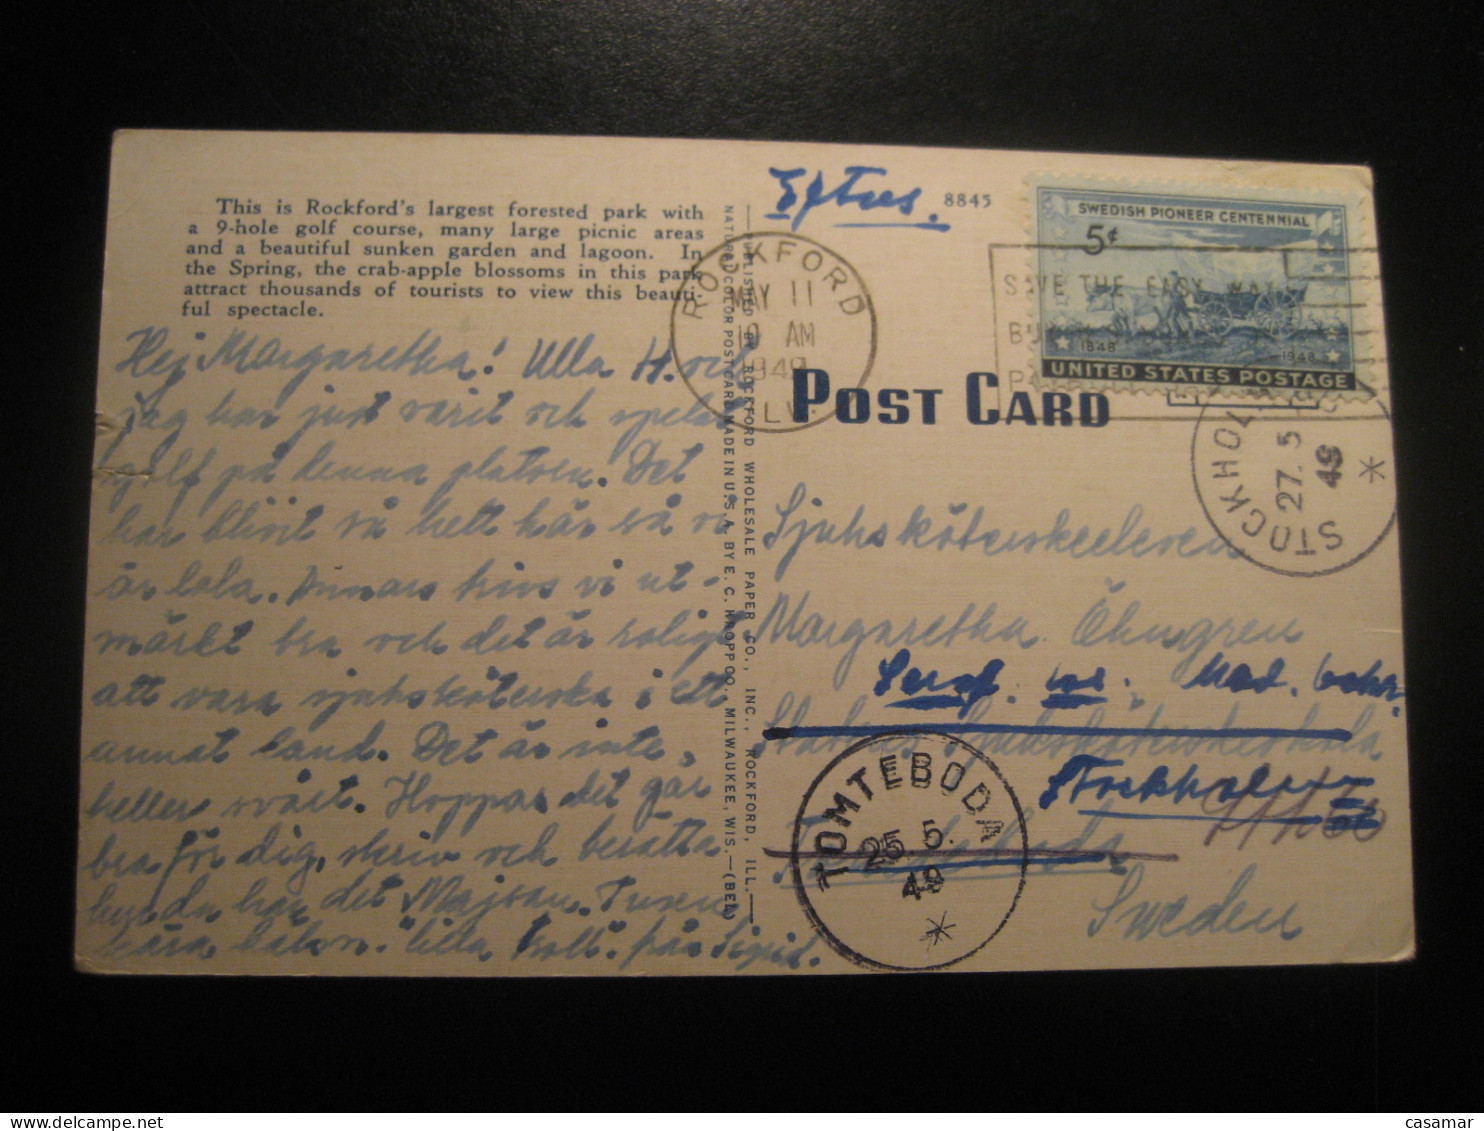 This is Rockford's largest forested park with
a 9-hole golf course, many large picnic areas
and a beautiful sunken garden and lagoon. In
the Spring, the crab-apple blossoms in this park
attract thousands of tourists to view this beauti-
ful spectacle.
Hej Margaretha! Ulla H. och
jag har just varit och spelat
golf på denna platsen. Det
har blivit så hett här så vi
är lata. Annars trivs vi ut-
märkt bra och det är roligt
att vara sjuksköterska i ett
annat land. Det är inte
heller svårt. Hoppas det går
bra för dig, skriv och berätta
hur du har det Majsan. Tusen
kära hälsn. lilla troll. från Sigrid.
—PUBLISHED BY ROCKFORD WHOLESALE PAPER CO., INC., ROCKFORD, ILL.—
NATURAL COLOR POST CARD MADE IN U. S. A. BY E. C. KROPP CO., MILWAUKEE, WIS.—(BEL)
Eftres.
8845
ROCKFORD
MAY 11
10 AM
1949
ILL.
SWEDISH PIONEER CENTENNIAL
5¢
1848
1948
UNITED STATES POSTAGE
SAVE THE EASY WAY
POST CARD
STOCKHOLM
27. 5
49
*
Sjuksköterskeeleven
Margaretha Öhngren
Med.
Statens Sjuksköterskeskola
Stockholm
Sweden
TOMTEBODA
25 5.
49
*
casamar